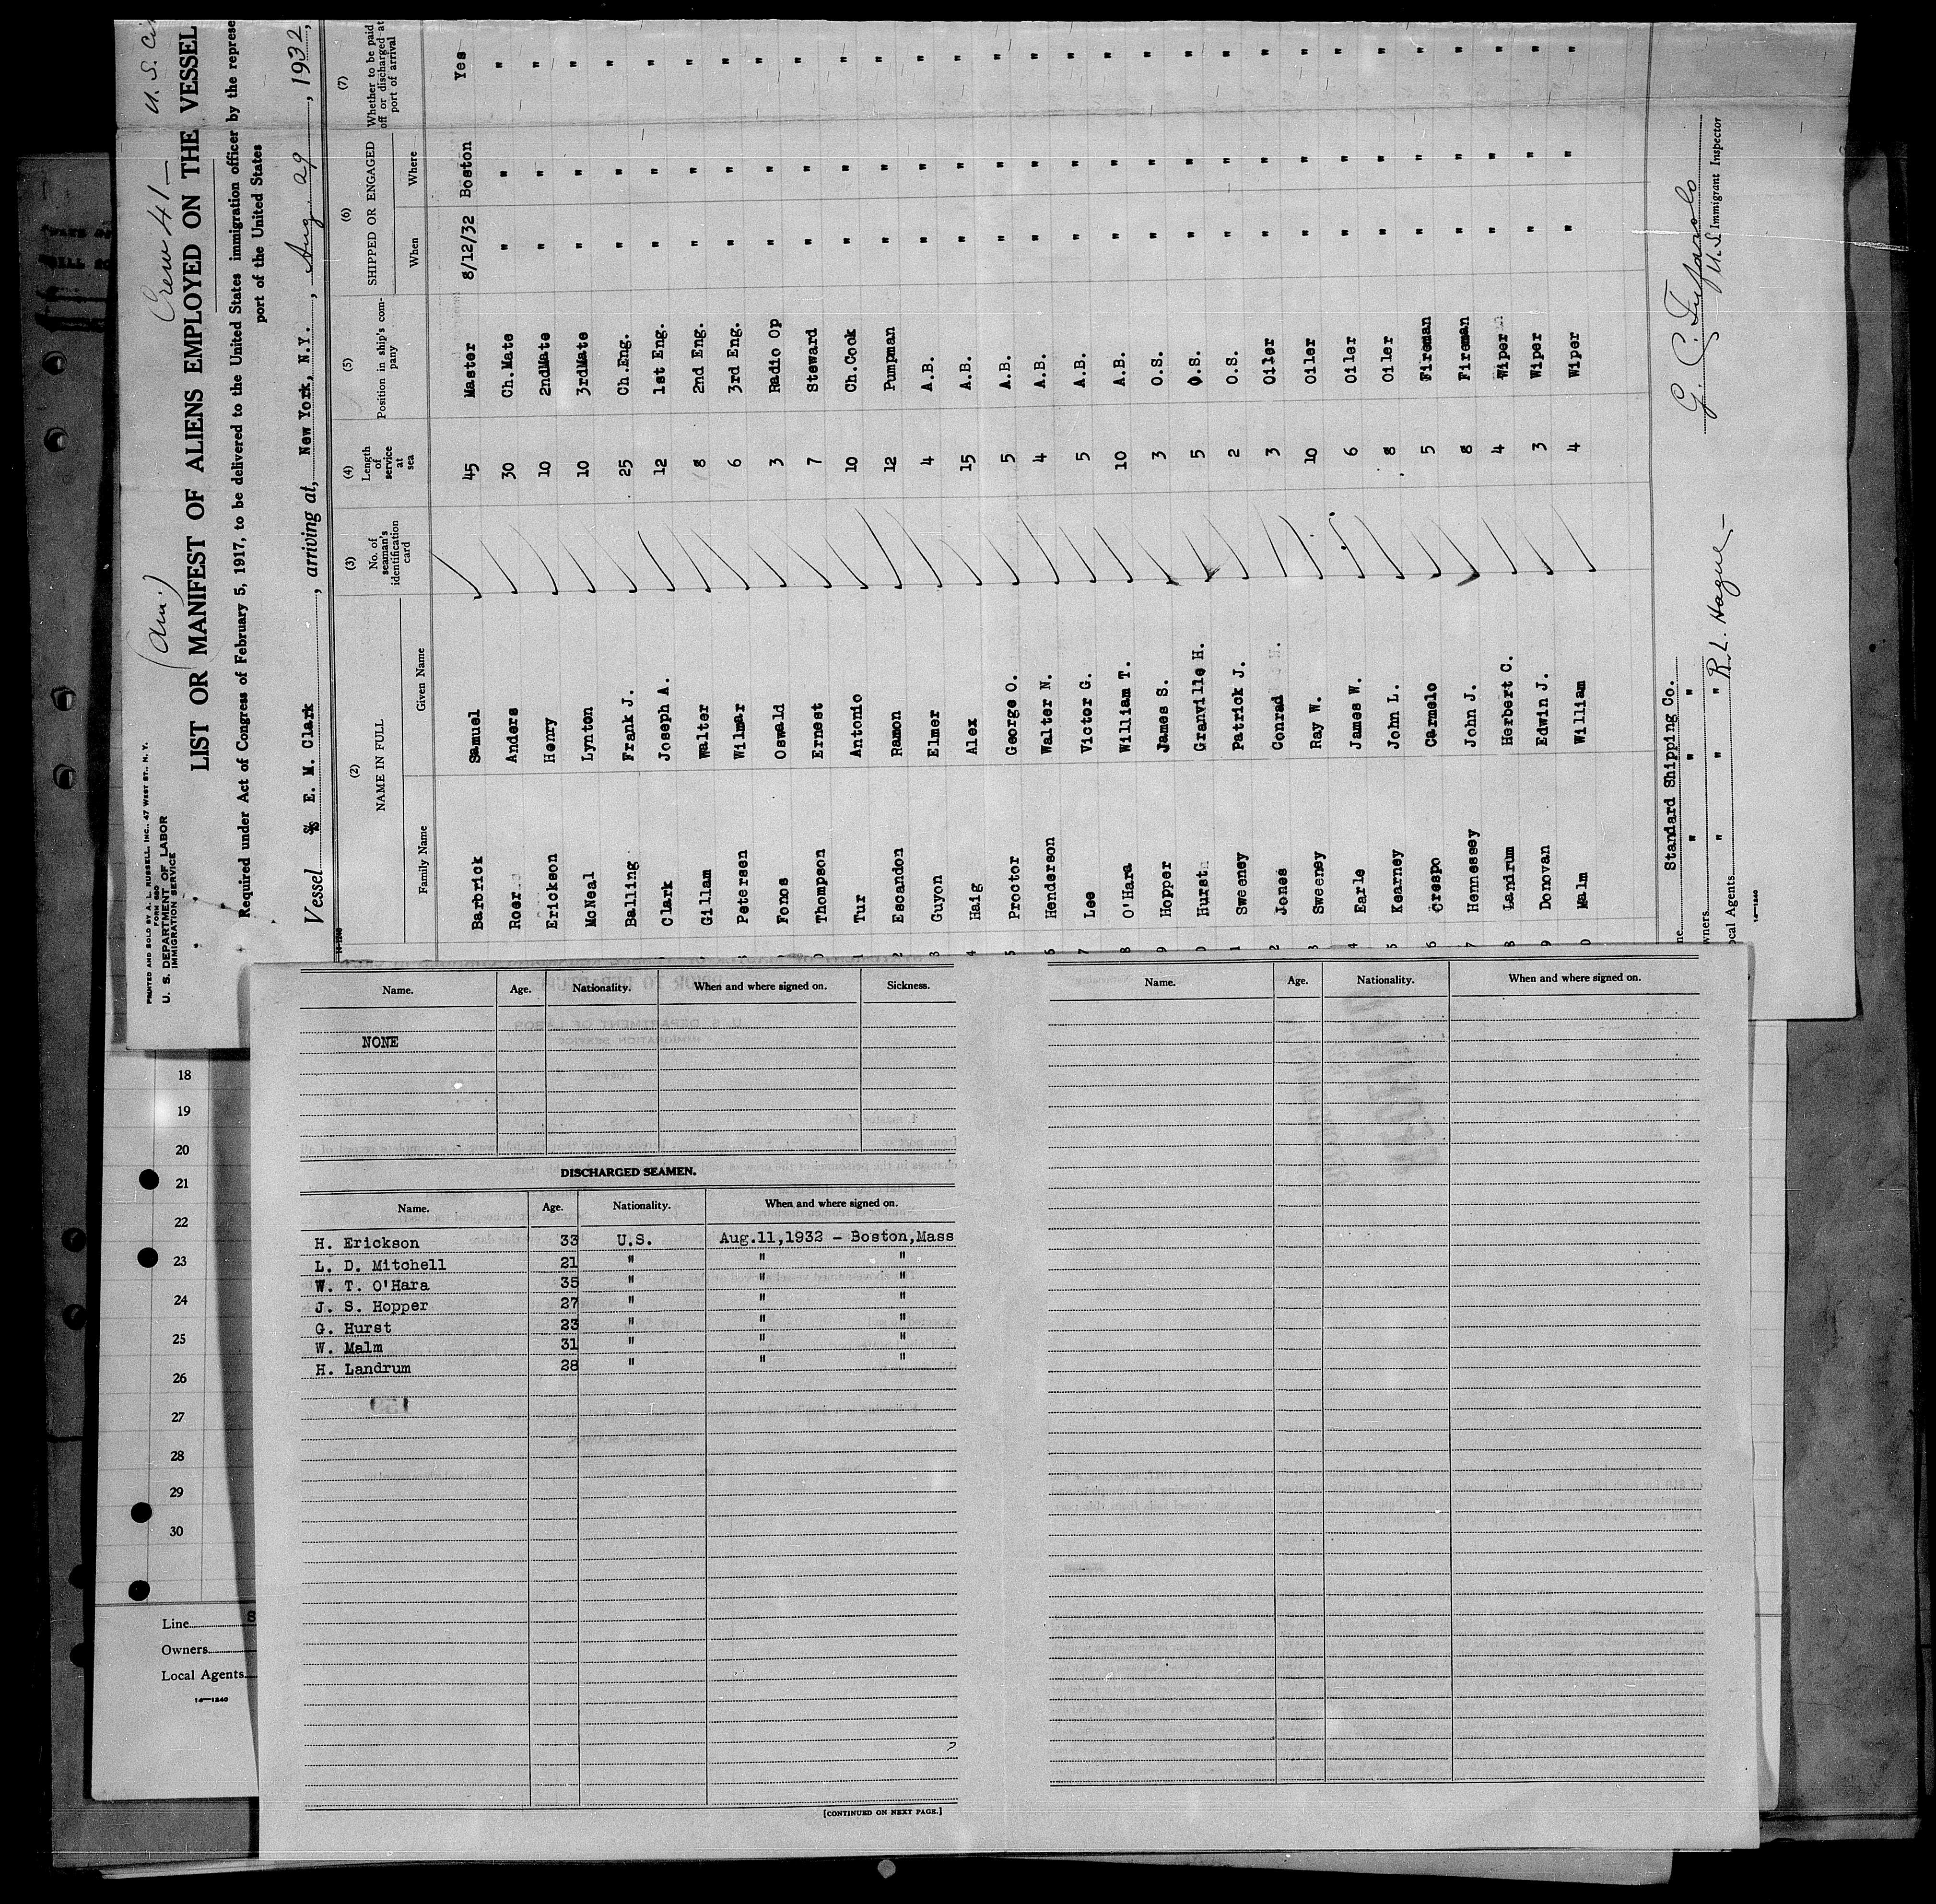 Crew 41 — U. S. Ci
(Am.)
PRINTED AND SOLD BY A. L. RUSSELL, INC., 47 WEST ST., N. Y.
FORM 680
U. S. DEPARTMENT OF LABOR
IMMIGRATION SERVICE
LIST OR MANIFEST OF ALIENS EMPLOYED ON THE VESSEL
Required under Act of Congress of February 5, 1917, to be delivered to the United States immigration officer by the represe
port of the United States
Vessel E. M. Clark, arriving at, New York, N.Y., Aug. 29, 1932,
(2) (3) (4) (5) (6) (7)
NAME IN FULL No. of seaman's identification card Length of service at sea Position in ship's company SHIPPED OR ENGAGED Whether to be paid off or discharged at port of arrival
Family Name Given Name When Where
Barbrick Samuel 45 Master 8/12/32 Boston Yes
Roer Anders 30 Ch.Mate " " "
Erickson Henry 10 2ndMate " " "
McNeal Lynton 10 3rdMate " " "
Balling Frank J. 25 Ch.Eng. " " "
Clark Joseph A. 12 1st Eng. " " "
Gillam Walter 8 2nd Eng. " " "
Petersen Wilmar 6 3rd Eng. " " "
Fonos Oswald 3 Radio Op " " "
Thompson Ernest 7 Steward " " "
Tur Antonio 10 Ch.Cook " " "
Escandon Ramon 12 Pumpman " " "
3 Guyon Elmer 4 A.B. " " "
4 Haig Alex 15 A.B. " " "
5 Proctor George O. 5 A.B. " " "
6 Henderson Walter N. 4 A.B. " " "
7 Lee Victor G. 5 A.B. " " "
8 O'Hara William T. 10 A.B. " " "
9 Hopper James S. 3 O.S. " " "
0 Hurst Granville H. 5 O.S. " " "
1 Sweeney Patrick J. 2 O.S. " " "
2 Jones Conrad 3 Oiler " " "
3 Sweeney Ray W. 10 Oiler " " "
4 Earle James W. 6 Oiler " " "
5 Kearney John L. 8 Oiler " " "
6 Crespo Carmelo 5 Fireman " " "
7 Hennessey John J. 8 Fireman " " "
8 Landrum Herbert C. 4 Wiper " " "
9 Donovan Edwin J. 3 Wiper " " "
0 Malm William 4 Wiper " " "
ne Standard Shipping Co.
wners " " "
ocal Agents " " " R.L. Hague
U.S. Immigrant Inspector
14—1240
Name. Age. Nationality. When and where signed on. Sickness.
NONE
DISCHARGED SEAMEN.
Name. Age. Nationality. When and where signed on.
H. Erickson 33 U.S. Aug.11,1932 - Boston,Mass
L. D. Mitchell 21 " " "
W. T. O'Hara 35 " " "
J. S. Hopper 27 " " "
G. Hurst 23 " " "
W. Malm 31 " " "
H. Landrum 28 " " "
[CONTINUED ON NEXT PAGE.]
Name. Age. Nationality. When and where signed on.
18
19
20
21
22
23
24
25
26
27
28
29
30
Line S
Owners
Local Agents
14—1240